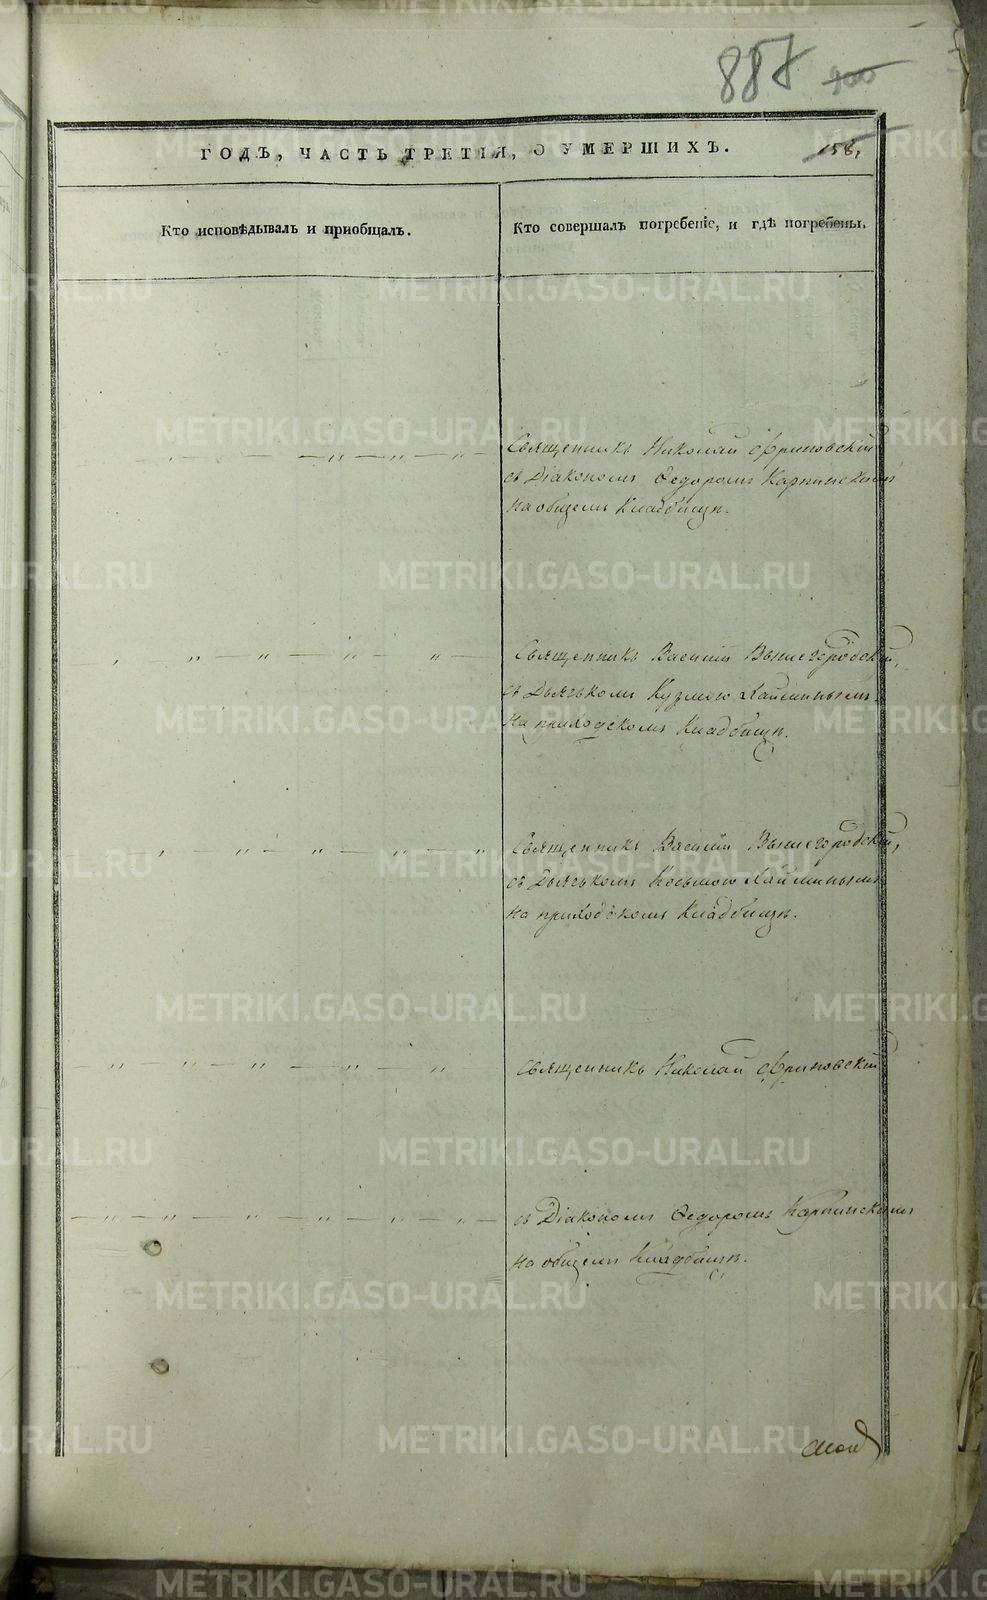 887 900
ГОДЪ, ЧАСТЬ ТРЕТІЯ, О УМЕРШИХЪ. 158,
Кто исповѣдывалъ и пріобщалъ.
Кто совершалъ погребеніе, и гдѣ погребены.
Священникъ Николай Фриновскій
съ Діакономъ Федоромъ Карпинскимъ
на общемъ Кладбищѣ.
Священникъ Василій Вышегородскій,
съ Дьячькомъ Кузмою
на приходскомъ Кладбищѣ.
Священникъ Василій Вышегородскій,
съ Дьячькомъ Косьмою
на приходскомъ Кладбищѣ.
Священникъ Николай Фриновскій
съ Діакономъ Федоромъ Карпинскимъ
на общемъ Кладбищѣ.
METRIKI.GASO-URAL.RU